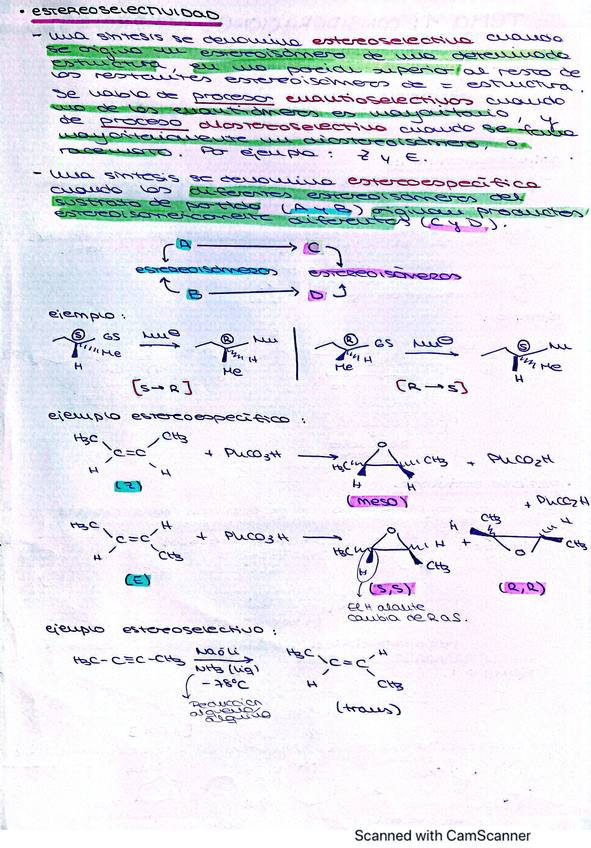 • ESTEREOSELECTIVIDAD
- una síntesis se denomina estereoselectiva cuando
se origina un estereoisómero de una determinada
estructura, en una porción superior al resto de
los restantes estereoisómeros de = estructura.
Se habla de procesos enantioselectivos cuando
uno de los enantiómeros es mayoritario, y
de proceso diastereoselectivo cuando se forma
mayoritariamente un diastereoisómero, o
racemato. Por ejemplo: Z y E.
- una síntesis se denomina estereoespecífica
cuando los diferentes estereoisómeros del
sustrato de partida (A y B) originan productos
estereoisoméricamente diferentes (C y D).
A → C
estereoisómeros estereoisómeros
B → D
ejemplo:
S GS Me H Nu⊖ R Nu H Me
R GS H Me Nu⊖ S Nu Me H
[S → R] [R → S]
ejemplo estereoespecífico:
H3C CH3 C=C H H + PhCO3H → O H3C CH3 H H + PhCO2H
(Z) (meso)
+ PhCO2H
H3C H C=C H CH3 + PhCO3H → O H3C H H CH3 + H CH3 H CH3 O
(E) (S,S) (R,R)
El H alante
cambia de R a S.
ejemplo estereoselectivo:
H3C-C≡C-CH3 Na ó Li NH3 (liq) -78°C H3C H C=C H CH3
Reducción
alquino
(trans)
Scanned with CamScanner